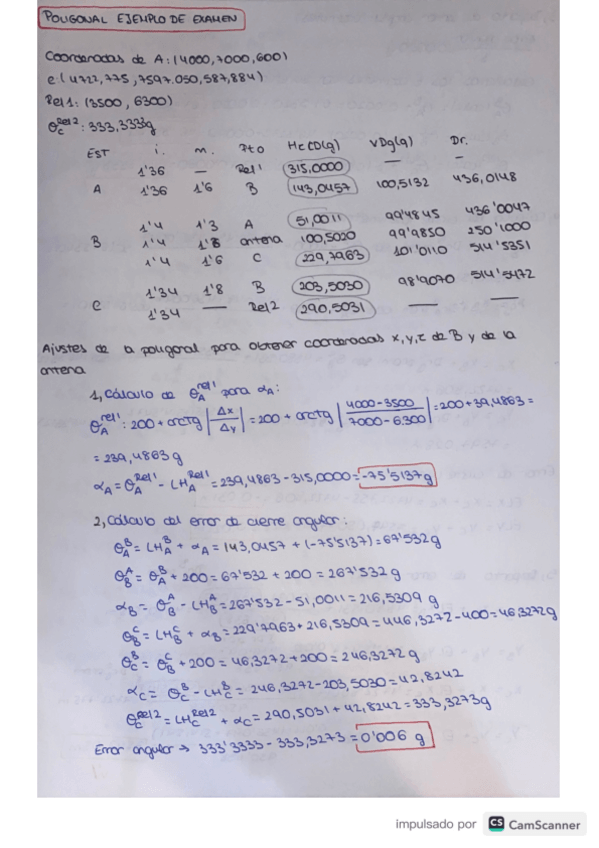 POLIGONAL EJEMPLO DE EXAMEN
Coordenadas de A: (4000, 7000, 600)
C: (4722,775, 7597.050, 587,884)
Rel1: (3500, 6300)
θc Rel2: 333,3333g
EST i. m. Pto HzCD(g) VDg(g) Dr.
1'36 — Rel1 315,0000 — —
A 1'36 1'6 B 143,0457 100,5132 436,0148
1'4 1'3 A 51,0011 99'4845 436'0047
B 1'4 1'8 antena 100,5020 99'9850 250'1000
1'4 1'6 C 229,7963 101'0110 514'5351
1'34 1'8 B 203,5030 98'9070 514'5472
C 1'34 — Rel2 290,5031 — —
Ajustes de la poligonal para obtener coordenadas x,y,z de B y de la
antena
1, Cálculo de θA rel1 para αA:
θA rel1: 200 + arctg |Δx/Δy| = 200 + arctg |4000-3500/7000-6300| = 200 + 39,4863 =
= 239,4863 g
αA = θA Rel1 - LHA Rel1 = 239,4863 - 315,0000 = -75'5137 g
2, Cálculo del error de cierre angular:
θA B = LHA B + αA = 143,0457 + (-75'5137) = 67'532 g
θB A = θA B + 200 = 67'532 + 200 = 267'532 g
αB = θB A - LHB A = 267'532 - 51,0011 = 216,5309 g
θB C = LHB C + αB = 229'7963 + 216,5309 = 446,3272 - 400 = 46,3272g
θC B = θB C + 200 = 46,3272 + 200 = 246,3272 g
αC = θC B - LHC B = 246,3272 - 203,5030 = 42,8242
θC Rel2 = LHC Rel2 + αC = 290,5031 + 42,8242 = 333,3273g
Error angular → 333'3333 - 333,3273 = 0'006 g
impulsado por CS CamScanner